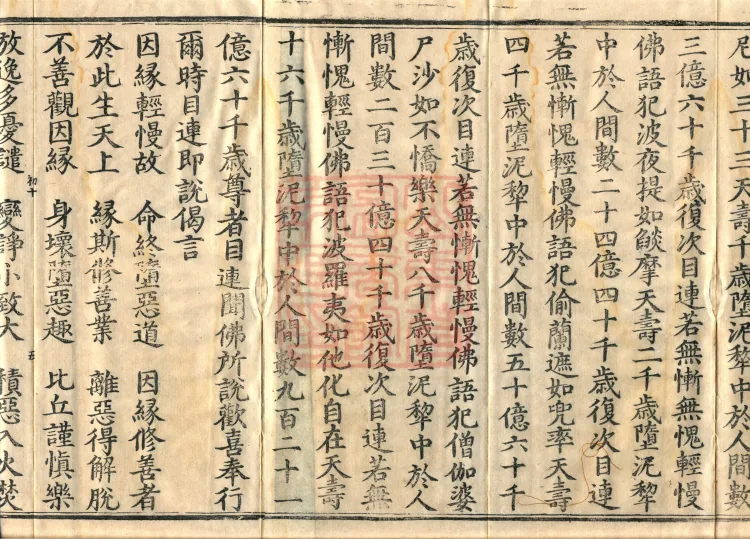 尼如三十三天壽千歲墮泥犂中於人間數
三億六十千歲復次目連若無慚無愧輕慢
佛語犯波夜提如燄摩天壽二千歲墮泥犂
中於人間數二十四億四十千歲復次目連
若無慚愧輕慢佛語犯偷蘭遮如兜率天壽
四千歲墮泥犂中於人間數五十億六十千
歲復次目連若無慚愧輕慢佛語犯僧伽婆
尸沙如不憍樂天壽八千歲墮泥犂中於人
間數二百三十億四十千歲復次目連若無
慚愧輕慢佛語犯波羅夷如他化自在天壽
十六千歲墮泥犂中於人間數九百二十一
億六十千歲尊者目連聞佛所說歡喜奉行
爾時目連即說偈言
因緣輕慢故　命終墮惡道　因緣修善者
於此生天上　緣斯修善業　離惡得解脫
不善觀因緣　身壞墮惡趣　比丘謹慎樂
初十　五
放逸多憂譴　變諍小致大　積惡入火焚